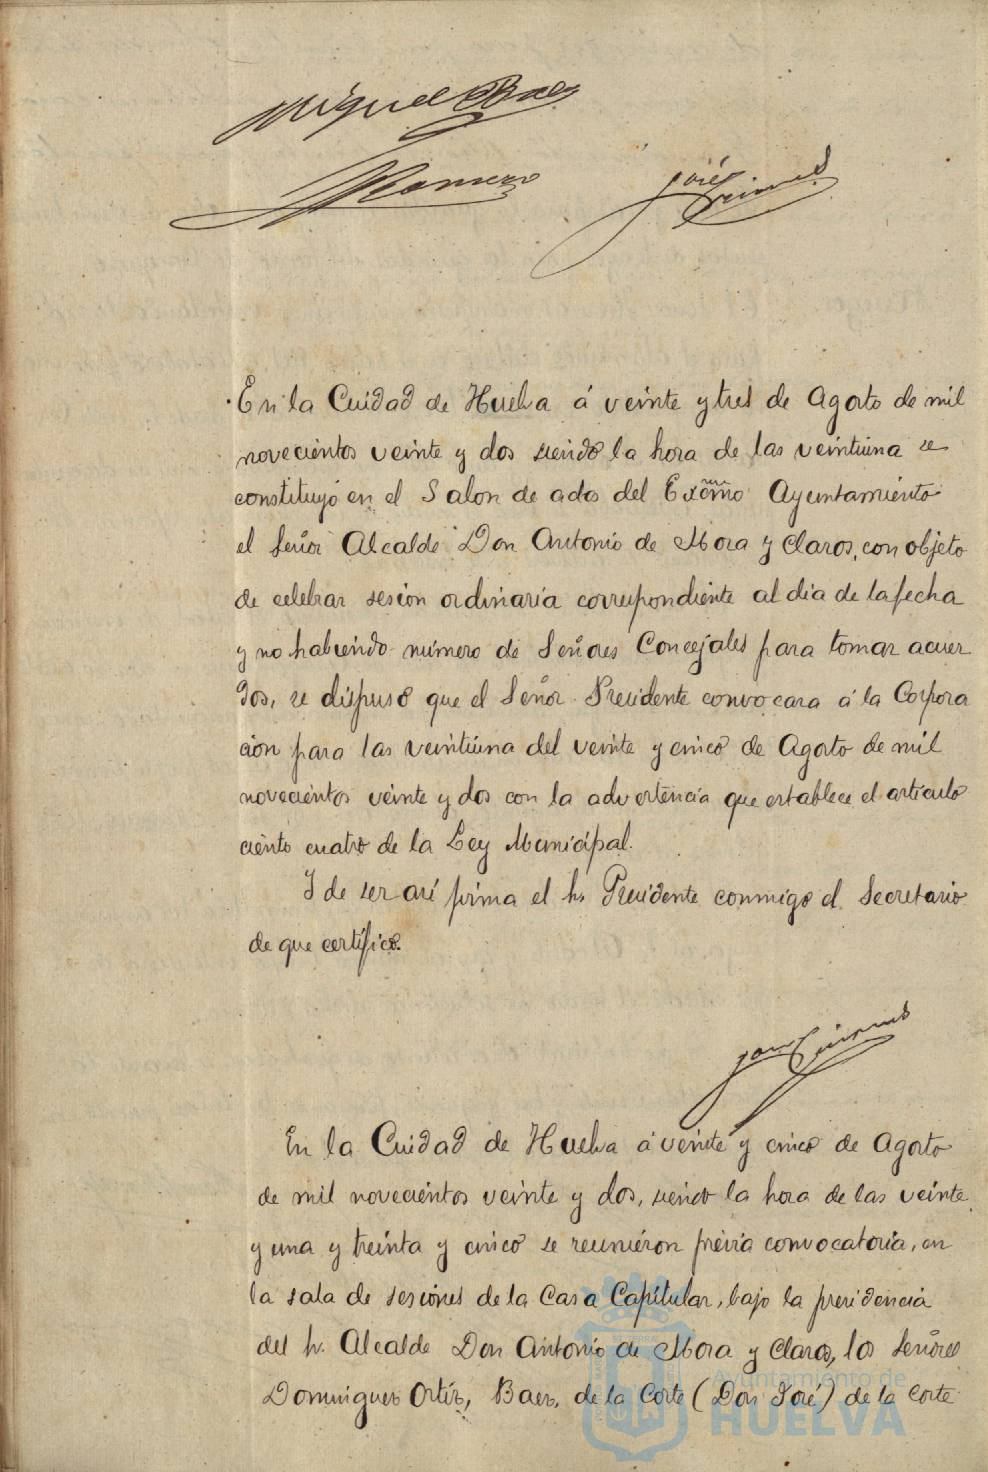 Miguel Baez
Romero
José
En la Cuidad de Huelva á veinte y tres de Agosto de mil
novecientos veinte y dos siendo la hora de las veintiuna se
constituyó en el Salon de actos del Excmo Ayuntamiento
el Señor Alcalde Don Antonio de Mora y Claros, con objeto
de celebrar sesion ordinaria correspondiente al dia de la fecha
y no habiendo número de Señores Concejales para tomar acuer
dos, se dispuso que el Señor Presidente convocara á la Corpora
cion para las veintiuna del veinte y cinco de Agosto de mil
novecientos veinte y dos con la advertencia que establece el articulo
ciento cuatro de la Ley Municipal.
Y de ser así firma el Sr. Presidente conmigo el Secretario
de que certifico.
En la Cuidad de Huelva á veinte y cinco de Agosto
de mil novecientos veinte y dos, siendo la hora de las veinte
y una y treinta y cinco se reunieron prévia convocatoria, en
la sala de sesiones de la Casa Capitular, bajo la presidencia
del Sr. Alcalde Don Antonio de Mora y Claros, los Señores
Dominguez Ortíz, Baez, de la Corte (Don José) de la Corte
Ayuntamiento de
HUELVA